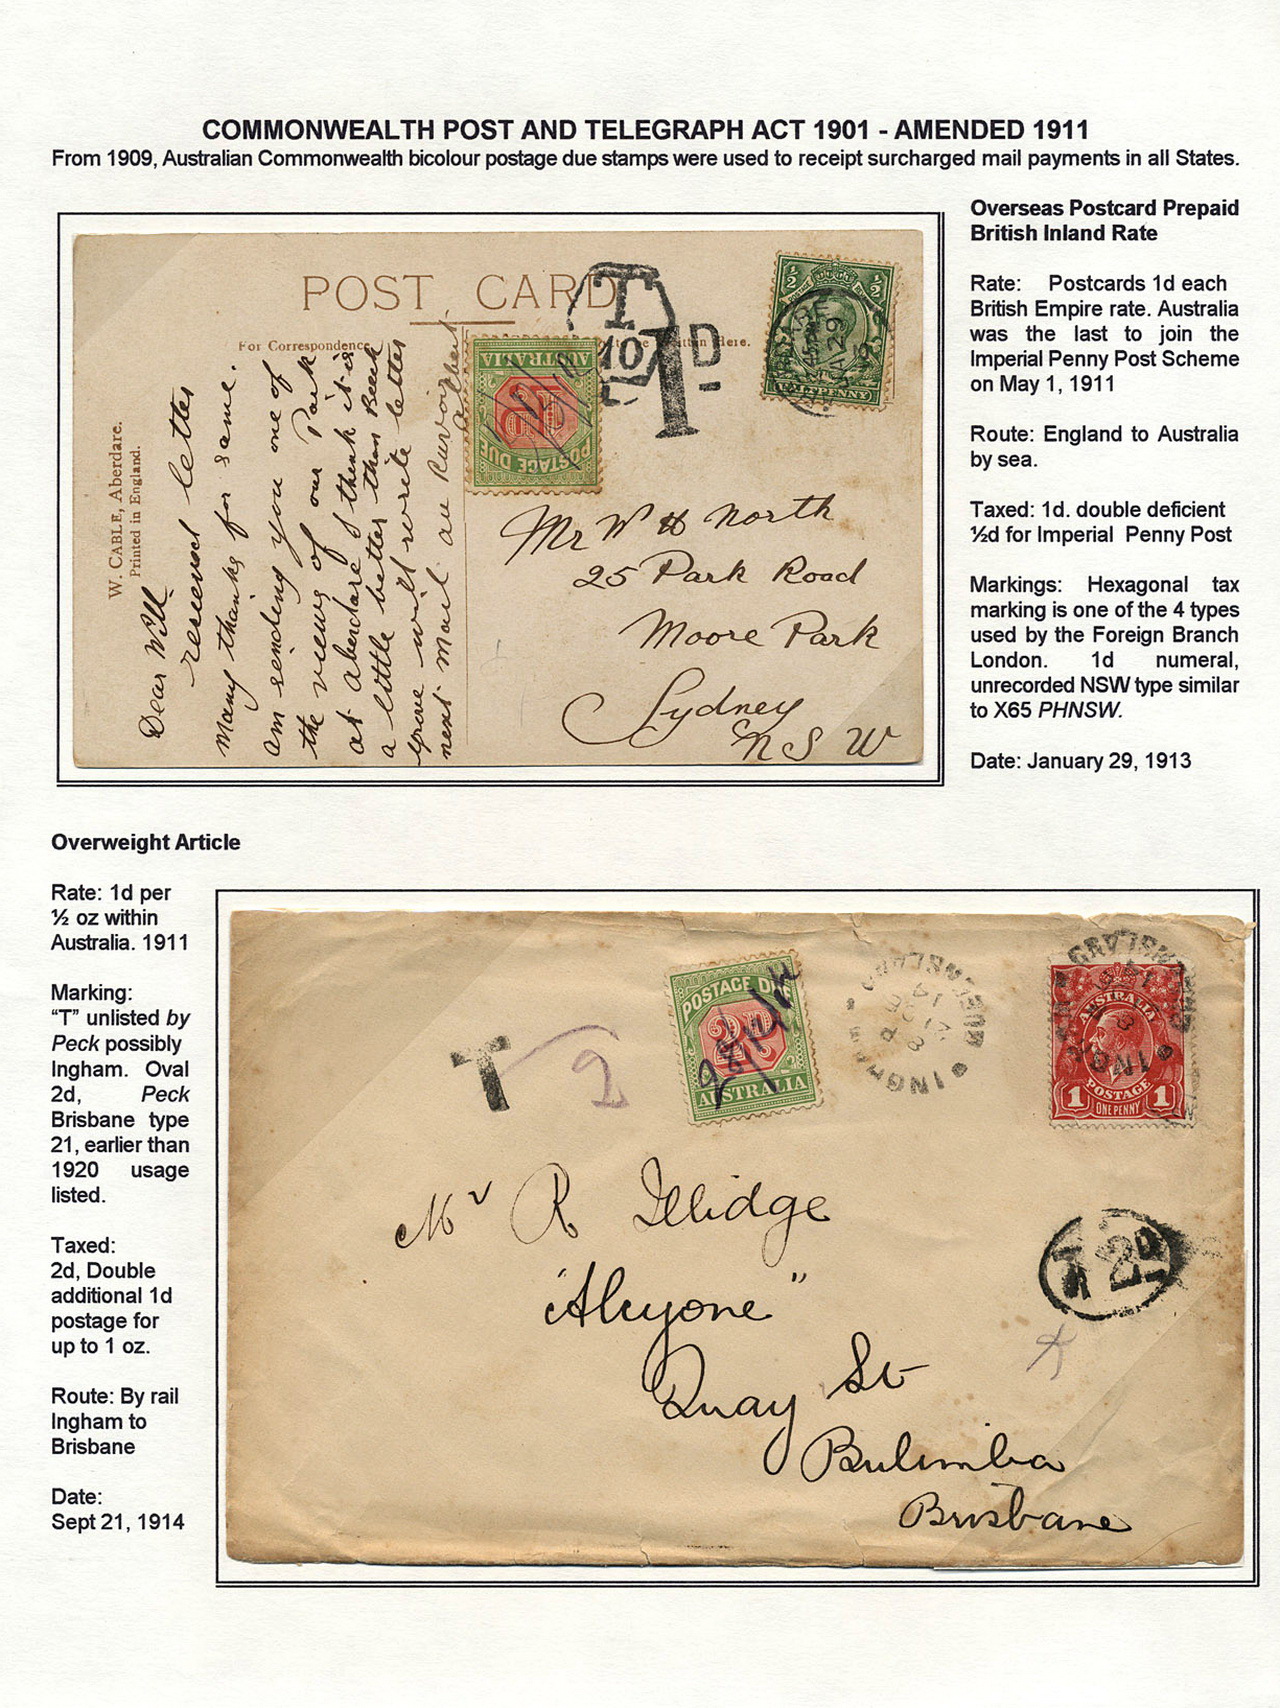 COMMONWEALTH POST AND TELEGRAPH ACT 1901 - AMENDED 1911
From 1909, Australian Commonwealth bicolour postage due stamps were used to receipt surcharged mail payments in all States.
Overseas Postcard Prepaid
British Inland Rate
Rate: Postcards 1d each
British Empire rate. Australia
was the last to join the
Imperial Penny Post Scheme
on May 1, 1911
Route: England to Australia
by sea.
Taxed: 1d. double deficient
½d for Imperial Penny Post
Markings: Hexagonal tax
marking is one of the 4 types
used by the Foreign Branch
London. 1d numeral,
unrecorded NSW type similar
to X65 PHNSW.
Date: January 29, 1913
POST CARD
For Correspondence
Here.
T
10
1D
½ ½
HALFPENNY
JA 29
POSTAGE DUE
1D
AUSTRALIA
W. CABLE, Aberdare.
Printed in England.
Dear Will
received letter
many thanks for same.
am sending you one of
the views of our Park
at aberdare I think it is
a little better than Beech
grove will write letter
next mail au Revoir
Albert
Mr W H North
25 Park Road
Moore Park
Sydney
N S W
Overweight Article
Rate: 1d per
½ oz within
Australia. 1911
Marking:
“T” unlisted by
Peck possibly
Ingham. Oval
2d, Peck
Brisbane type
21, earlier than
1920 usage
listed.
Taxed:
2d, Double
additional 1d
postage for
up to 1 oz.
Route: By rail
Ingham to
Brisbane
Date:
Sept 21, 1914
T
2
POSTAGE DUE
2D
AUSTRALIA
INGHAM
QUEENSLAND
AUSTRALIA
1 POSTAGE 1
ONE PENNY
2D
Mr R Illidge
"Alcyone"
Quay St
Bulimba
Brisbane